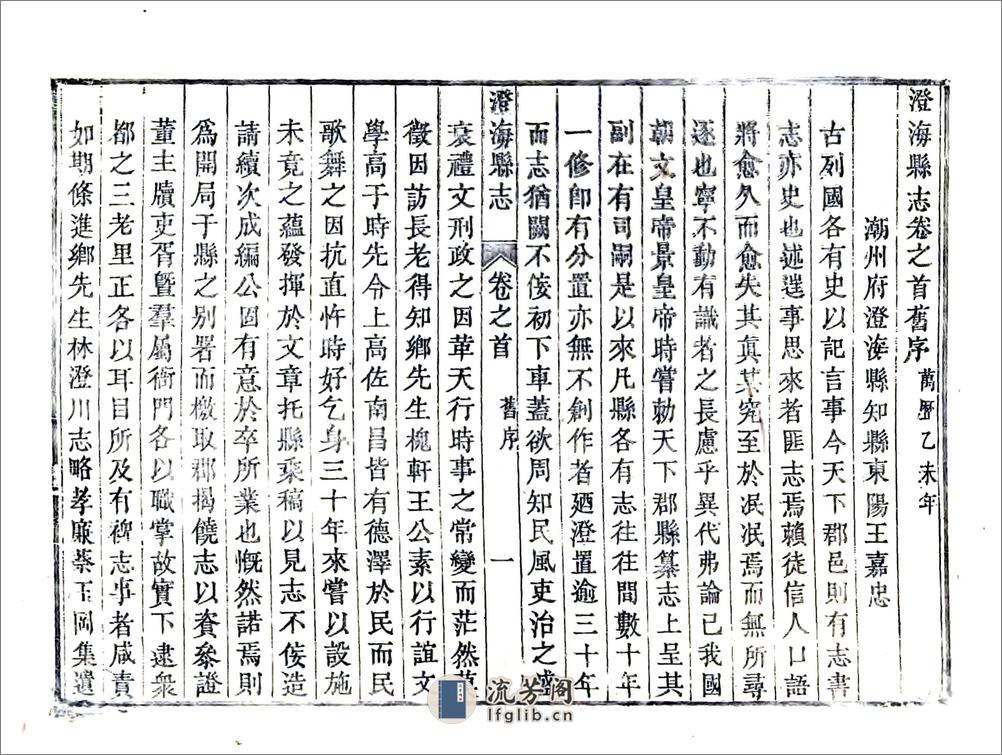 澄海縣志卷之首舊序 萬曆乙未年
潮州府澄海縣知縣東陽王嘉忠
古列國各有史以記言事今天下郡邑則有志書
志亦史也述遑事思來者匪志焉賴徒信人口語
將愈久而愈失其真其究至於泯泯焉而無所尋
逐也寧不動有識者之長慮乎異代弗論已我國
朝文皇帝景皇帝時嘗勅天下郡縣纂志上呈其
副在有司嗣是以來凡縣各有志往往間數十年
一修卽有分置亦無不創作者廼澄置逾三十年
而志猶闕不佞初下車蓋欲周知民風吏治之盛
澄海縣志 卷之首 舊序 一
衰禮文刑政之因革天行時事之常變而茫然莫
徵因訪長老得知鄉先生槐軒王公素以行誼文
學高于時先令上高佐南昌皆有德澤於民而民
歌舞之因抗直忤時好乞身三十年來嘗以設施
未竟之蘊發揮於文章托縣乘稿以見志不佞造
請續次成編公固有意於卒所業也慨然諾焉則
爲開局于縣之别署而檄取郡揭饒志以資參證
董主牘吏胥曁羣屬衙門各以職掌故實下逮衆
都之三老里正各以耳目所及有碑志事者咸責
如期條進鄉先生林澄川志略孝廉蔡玉岡集遺
流芳阁
lfglib.cn